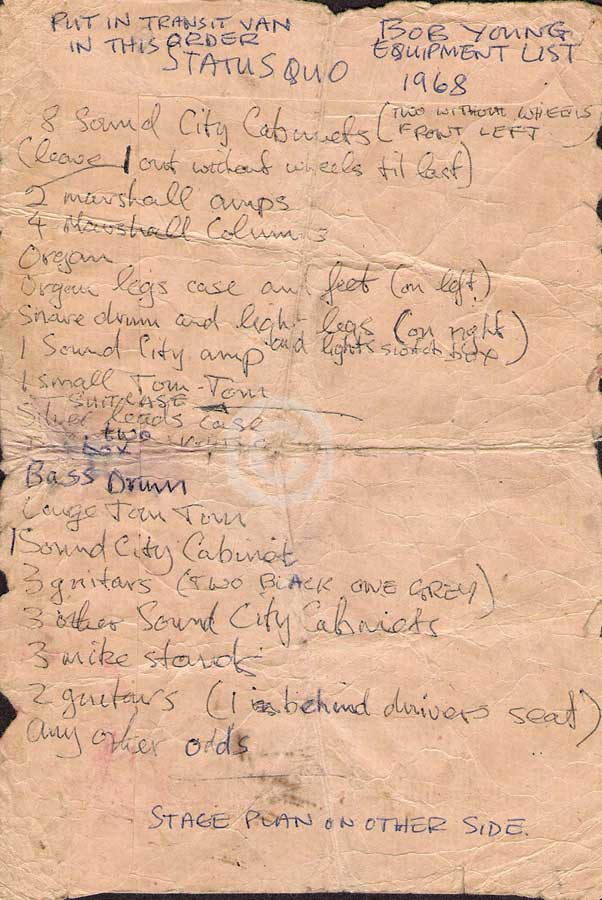 PUT IN TRANSIT VAN
IN THIS ORDER
BOB YOUNG
EQUIPMENT LIST
STATUS QUO
1968
8 Sound City Cabinets (TWO WITHOUT WHEELS
FRONT LEFT)
(leave 1 out without wheels til last)
2 marshall amps
4 Marshall Columns
Organ
Organ legs case and feet (on left)
Snare drum and light legs (on right)
1 Sound City amp and lights switch box
1 small Tom-Tom
SUITCASE
Silver leads case
two
box
Bass Drum
Large Tom Tom
1 Sound City Cabinet
3 guitars (TWO BLACK ONE GREY)
3 other Sound City Cabinets
3 mike stands
2 guitars (1 behind drivers seat)
any other odds
STAGE PLAN ON OTHER SIDE.